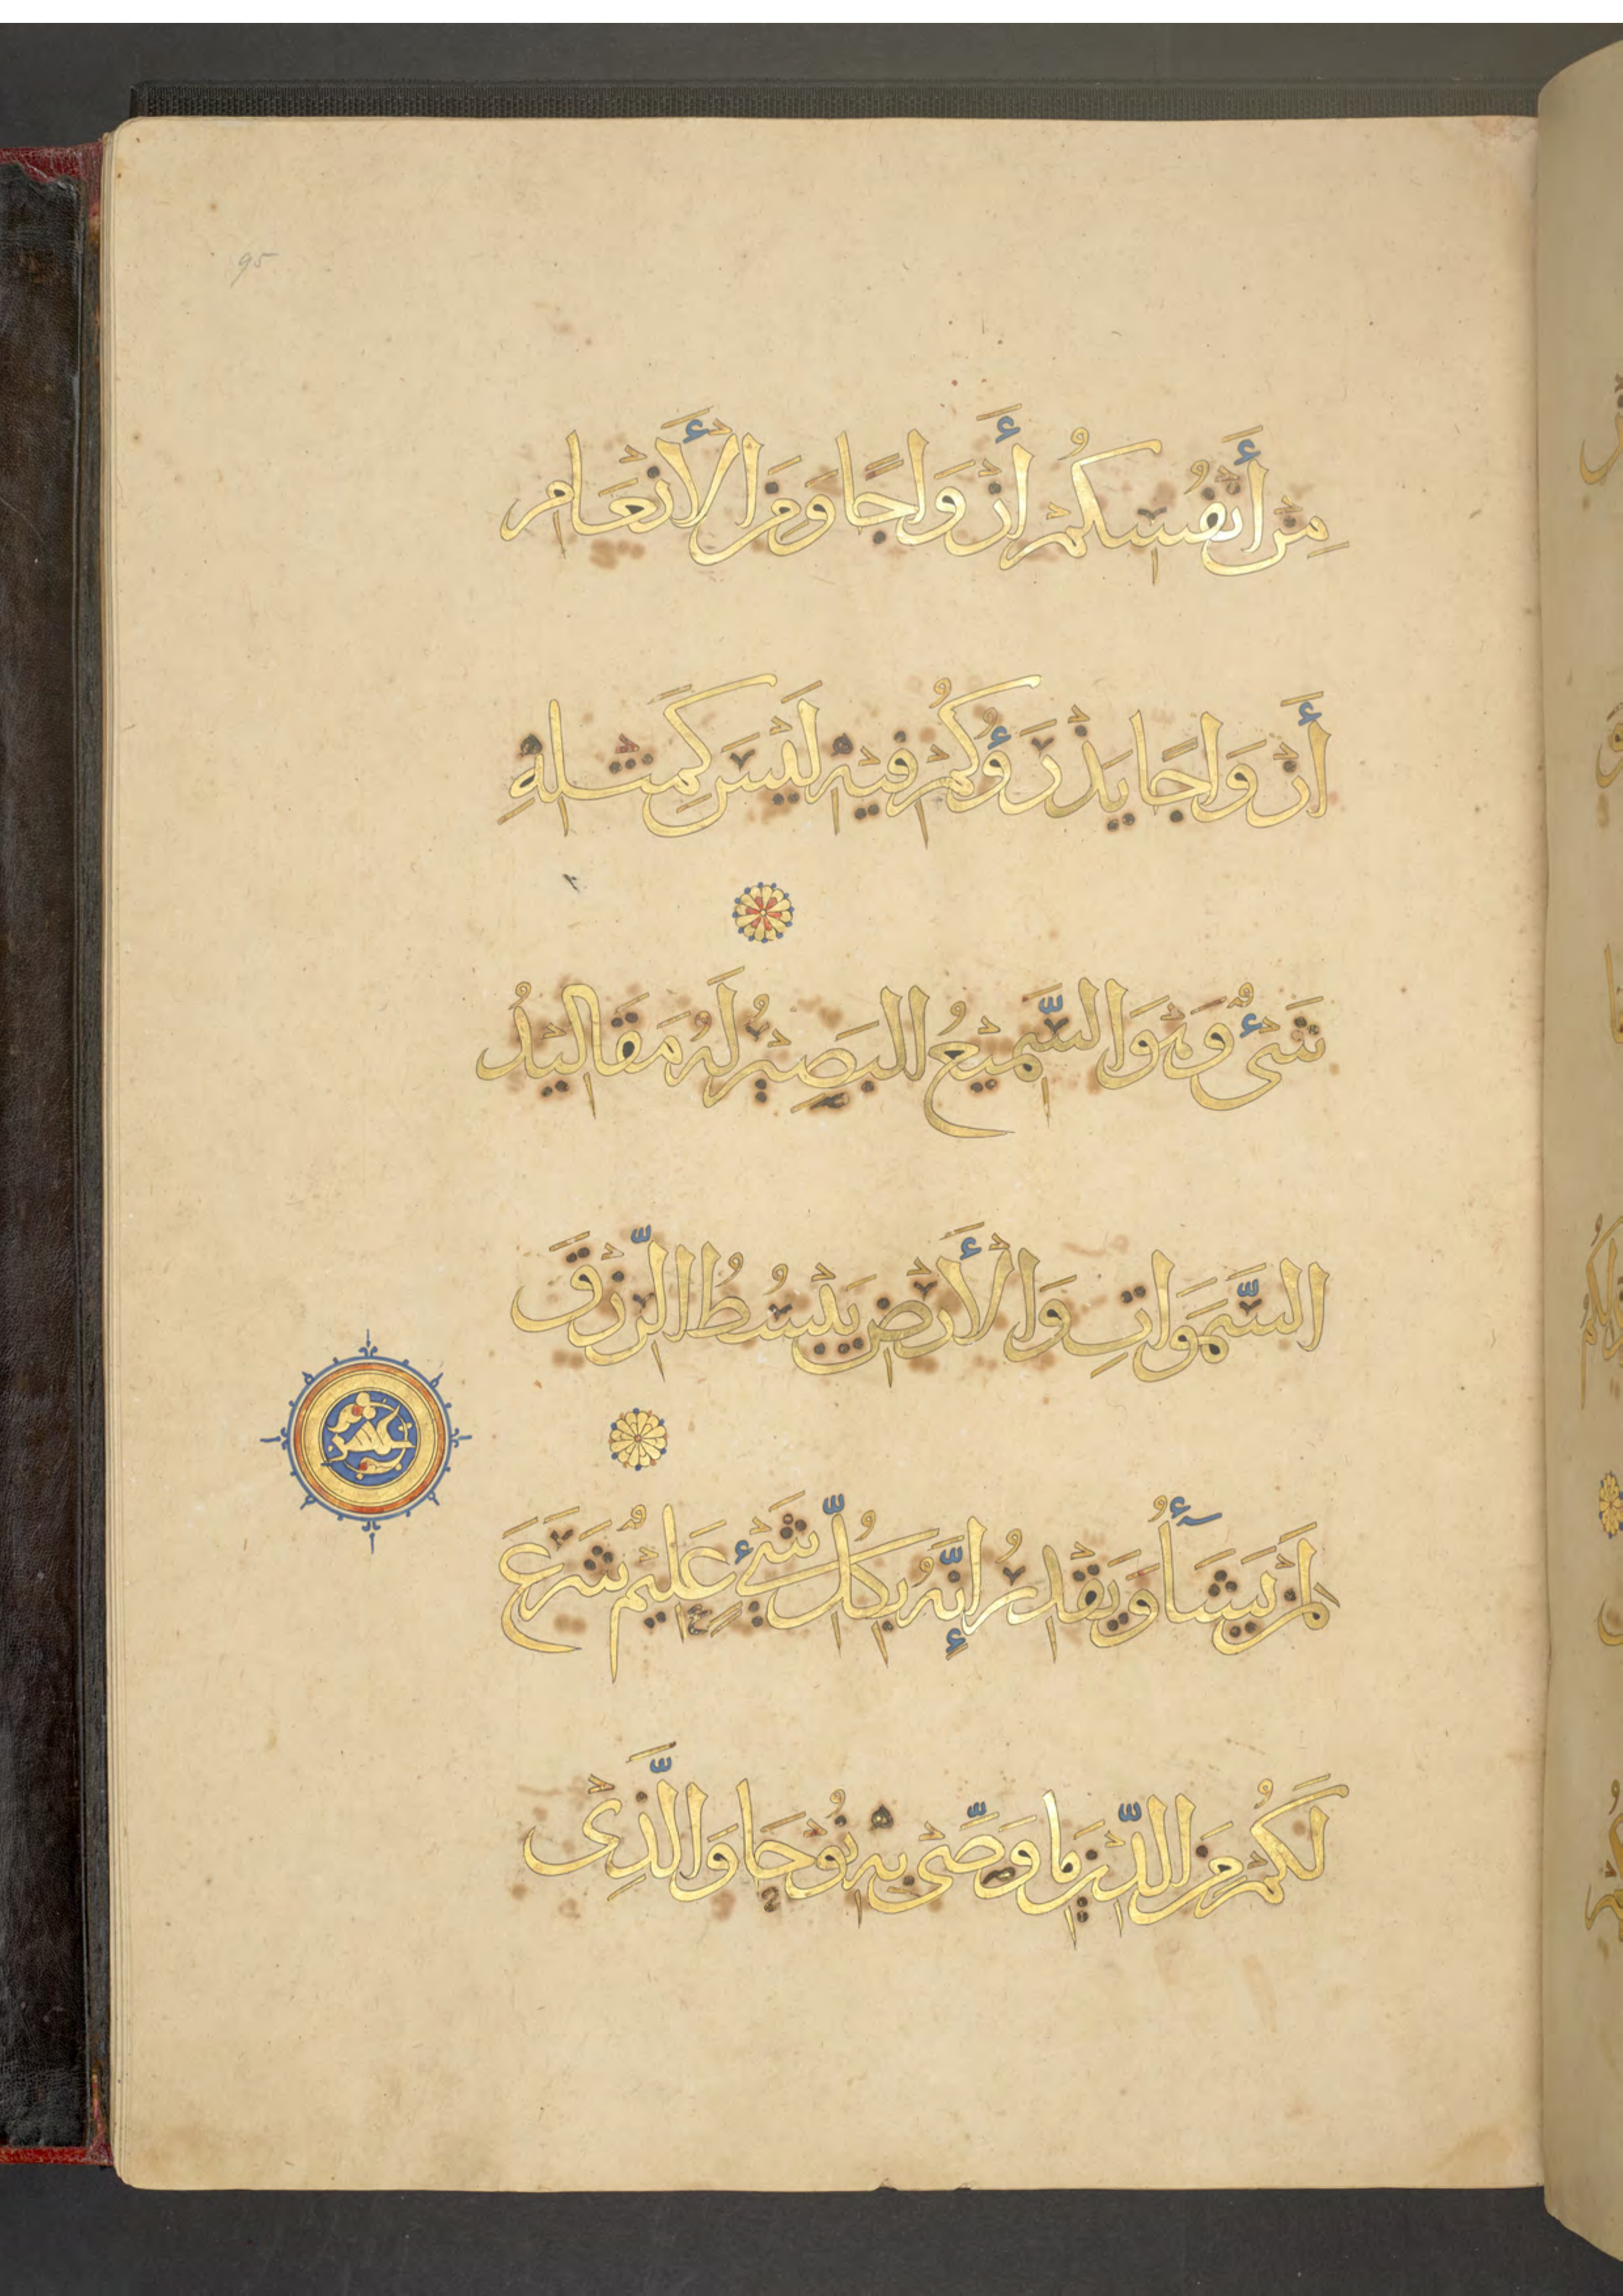 95
مِنْ أَنْفُسِكُمْ أَزْوَاجًا وَمِنَ الْأَنْعَامِ
أَزْوَاجًا يَذْرَؤُكُمْ فِيهِ لَيْسَ كَمِثْلِهِ
شَىْءٌ وَهُوَ السَّمِيعُ الْبَصِيرُ لَهُ مَقَالِيدُ
السَّمَوَاتِ وَالْأَرْضِ يَبْسُطُ الرِّزْقَ
عشر
لِمَنْ يَشَأُ وَيَقْدِرُ إِنَّهُ بِكُلِّ شَىْءٍ عَلِيمٌ شَرَعَ
لَكُمْ مِنَ الدِّينِ مَا وَصَّى بِهِ نُوحًا وَالَّذِى